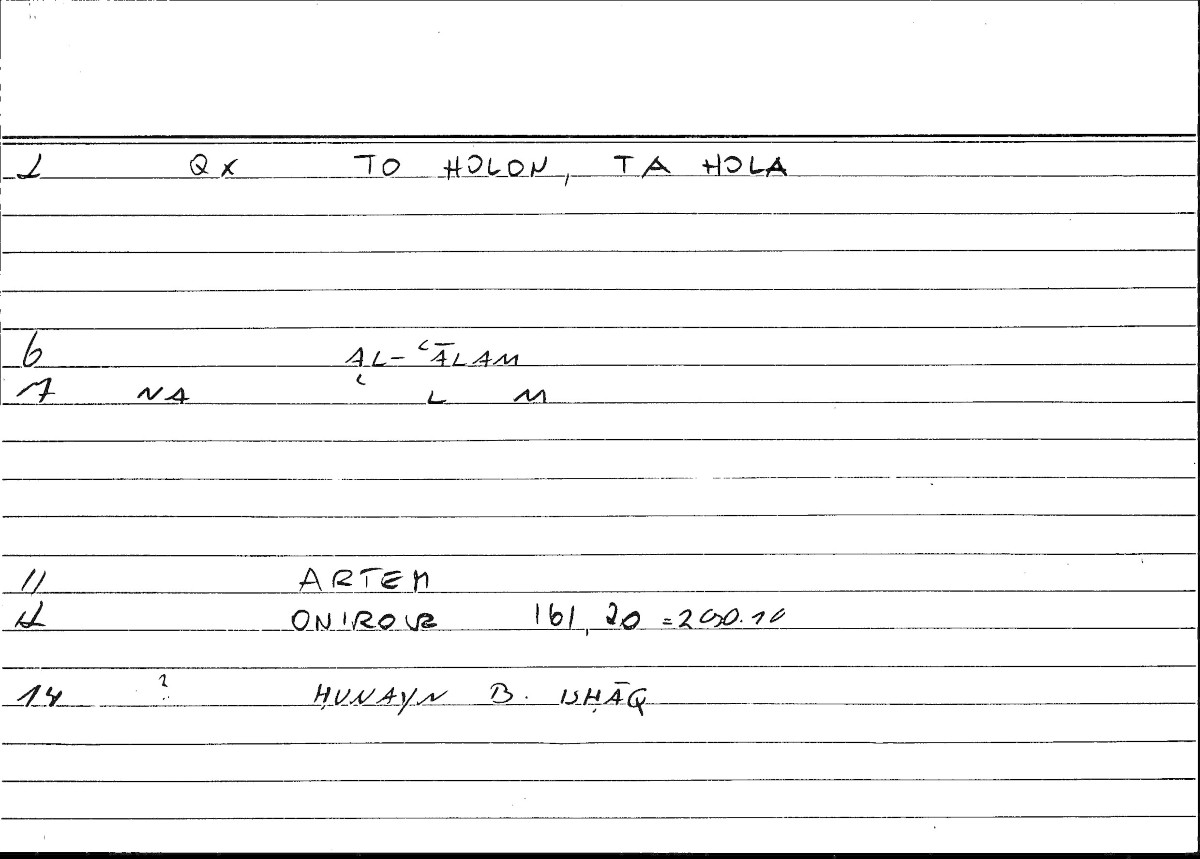 1 QX TO HOLON, TA HOLA
6 AL-ʿĀLAM
7 NA ʿ L M
11 ARTEM
12 ONIROCR 161, 20 =290.10
14 ? ḤUNAYN B. ISḤĀQ